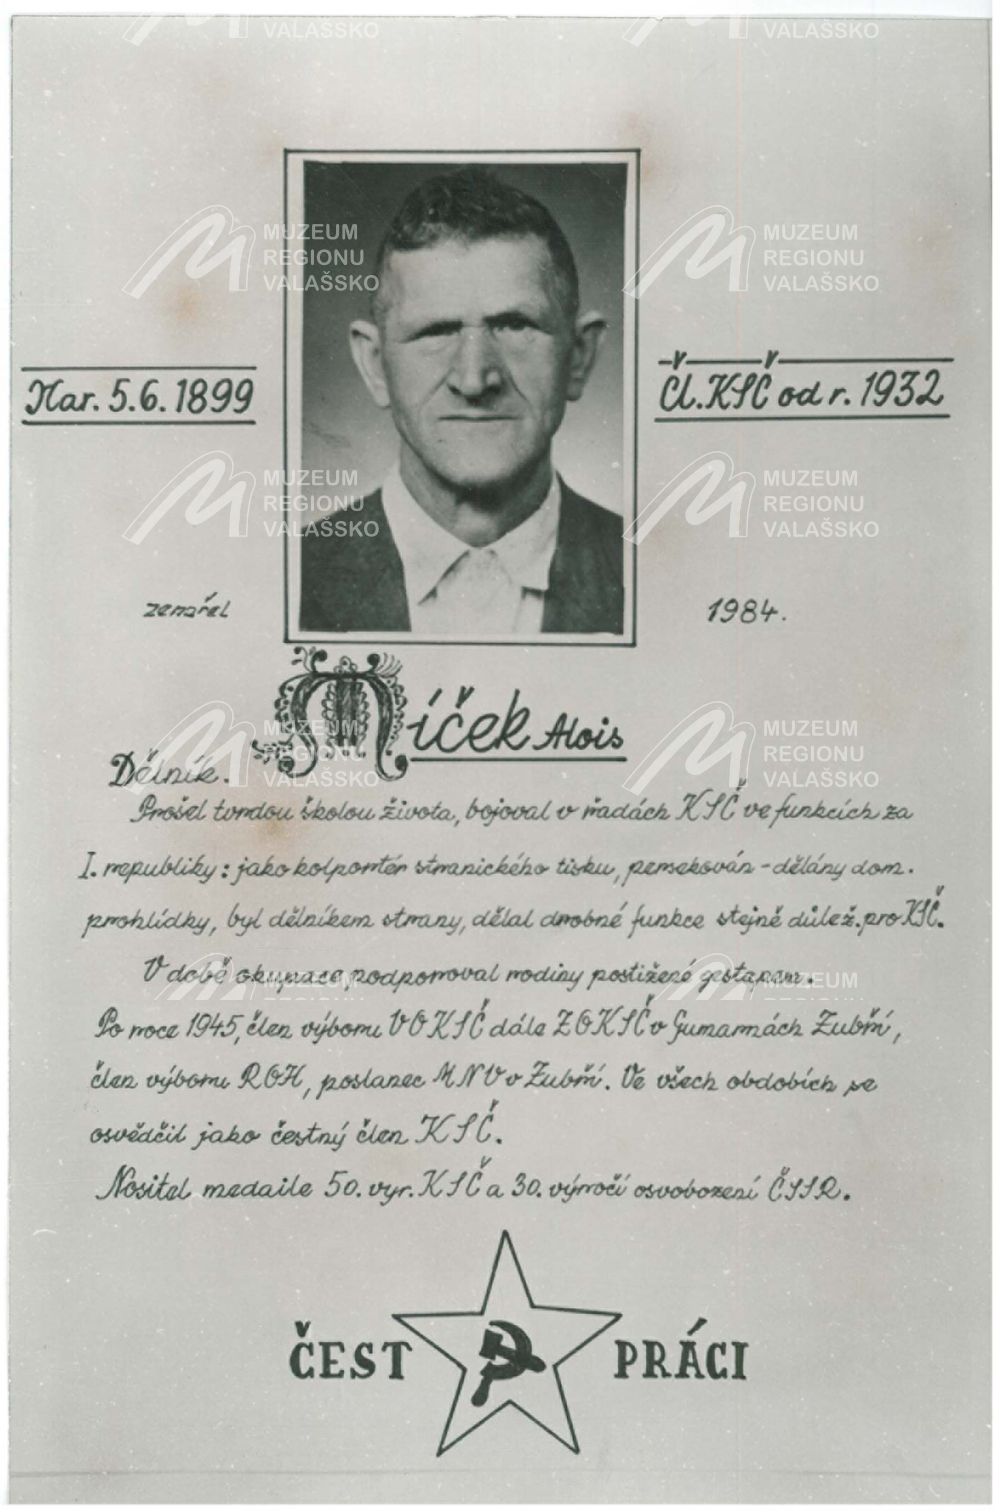 Nar. 5.6.1899
Čl. KSČ od r. 1932
zemřel 1984.
Míček Alois
Dělník.
Prošel tvrdou školou života, bojoval v řadách KSČ ve funkcích za
I. republiky: jako kolportér stranického tisku, persekován - dělány dom.
prohlídky, byl dělníkem strany, dělal drobné funkce stejně důlež. pro KSČ.
V době okupace podporoval rodiny postižené gestapem.
Po roce 1945, člen výboru VOKSČ dále ZOKSČ v Gumárnách Zubří,
člen výboru ROH, poslanec MNV v Zubří. Ve všech obdobích se
osvědčil jako čestný člen KSČ.
Nositel medaile 50. vyr. KSČ a 30. výročí osvobození ČSSR.
ČEST PRÁCI
MUZEUM
REGIONU
VALAŠSKO